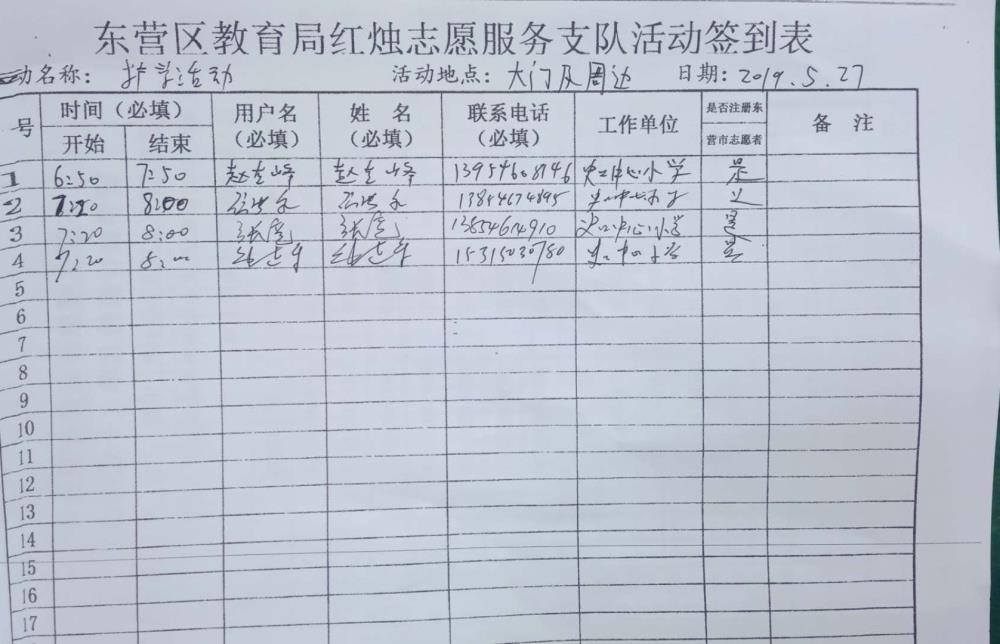 东营区教育局红烛志愿服务支队活动签到表
动名称： 护学活动 活动地点：大门及周边 日期：2019.5.27
号 时间（必填） 用户名（必填） 姓 名（必填） 联系电话（必填） 工作单位 是否注册东营市志愿者 备 注
开始 结束
1 6:50 7:50 13954608746 中心小学 是
2 7:20 8:00 13844674895
3 7:20 8:00 张 张 13854614910 中心小学 是
4 7:20 8:00 15315030780 是
5
6
7
8
9
10
11
12
13
14
15
16
17